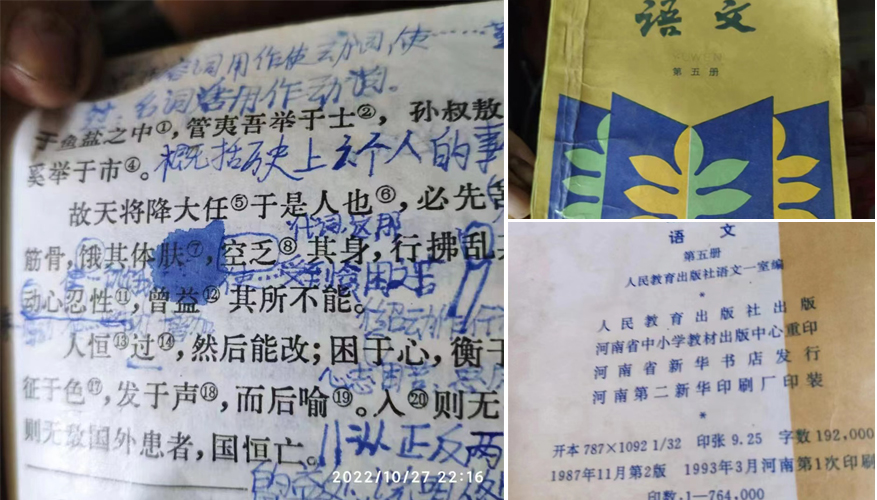 词用作使动词使……
名词活用作动词。
于鱼盐之中①，管夷吾举于士②，孙叔敖
奚举于市④。
概括历史上六个人的事
故天将降大任⑤于是人也⑥，必先苦
代词这那
筋骨，饿其体肤⑦，空乏⑧其身，行拂乱
动心忍性⑪，曾益⑫其所不能。
增加
人恒⑬过⑭，然后能改；困于心，衡于
征于色⑰，发于声⑱，而后喻⑲。入⑳则无
则无敌国外患者，国恒亡。
从正反两
2022/10/27 22:16
语文
第五册
语文
第五册
人民教育出版社语文一室编
*
人民教育出版社出版
河南省中小学教材出版中心重印
河南省新华书店发行
河南第二新华印刷厂印装
*
开本 787×1092 1/32 印张 9.25 字数 192,000
1987年11月第2版 1993年3月河南第1次印刷
印数：1—764,000